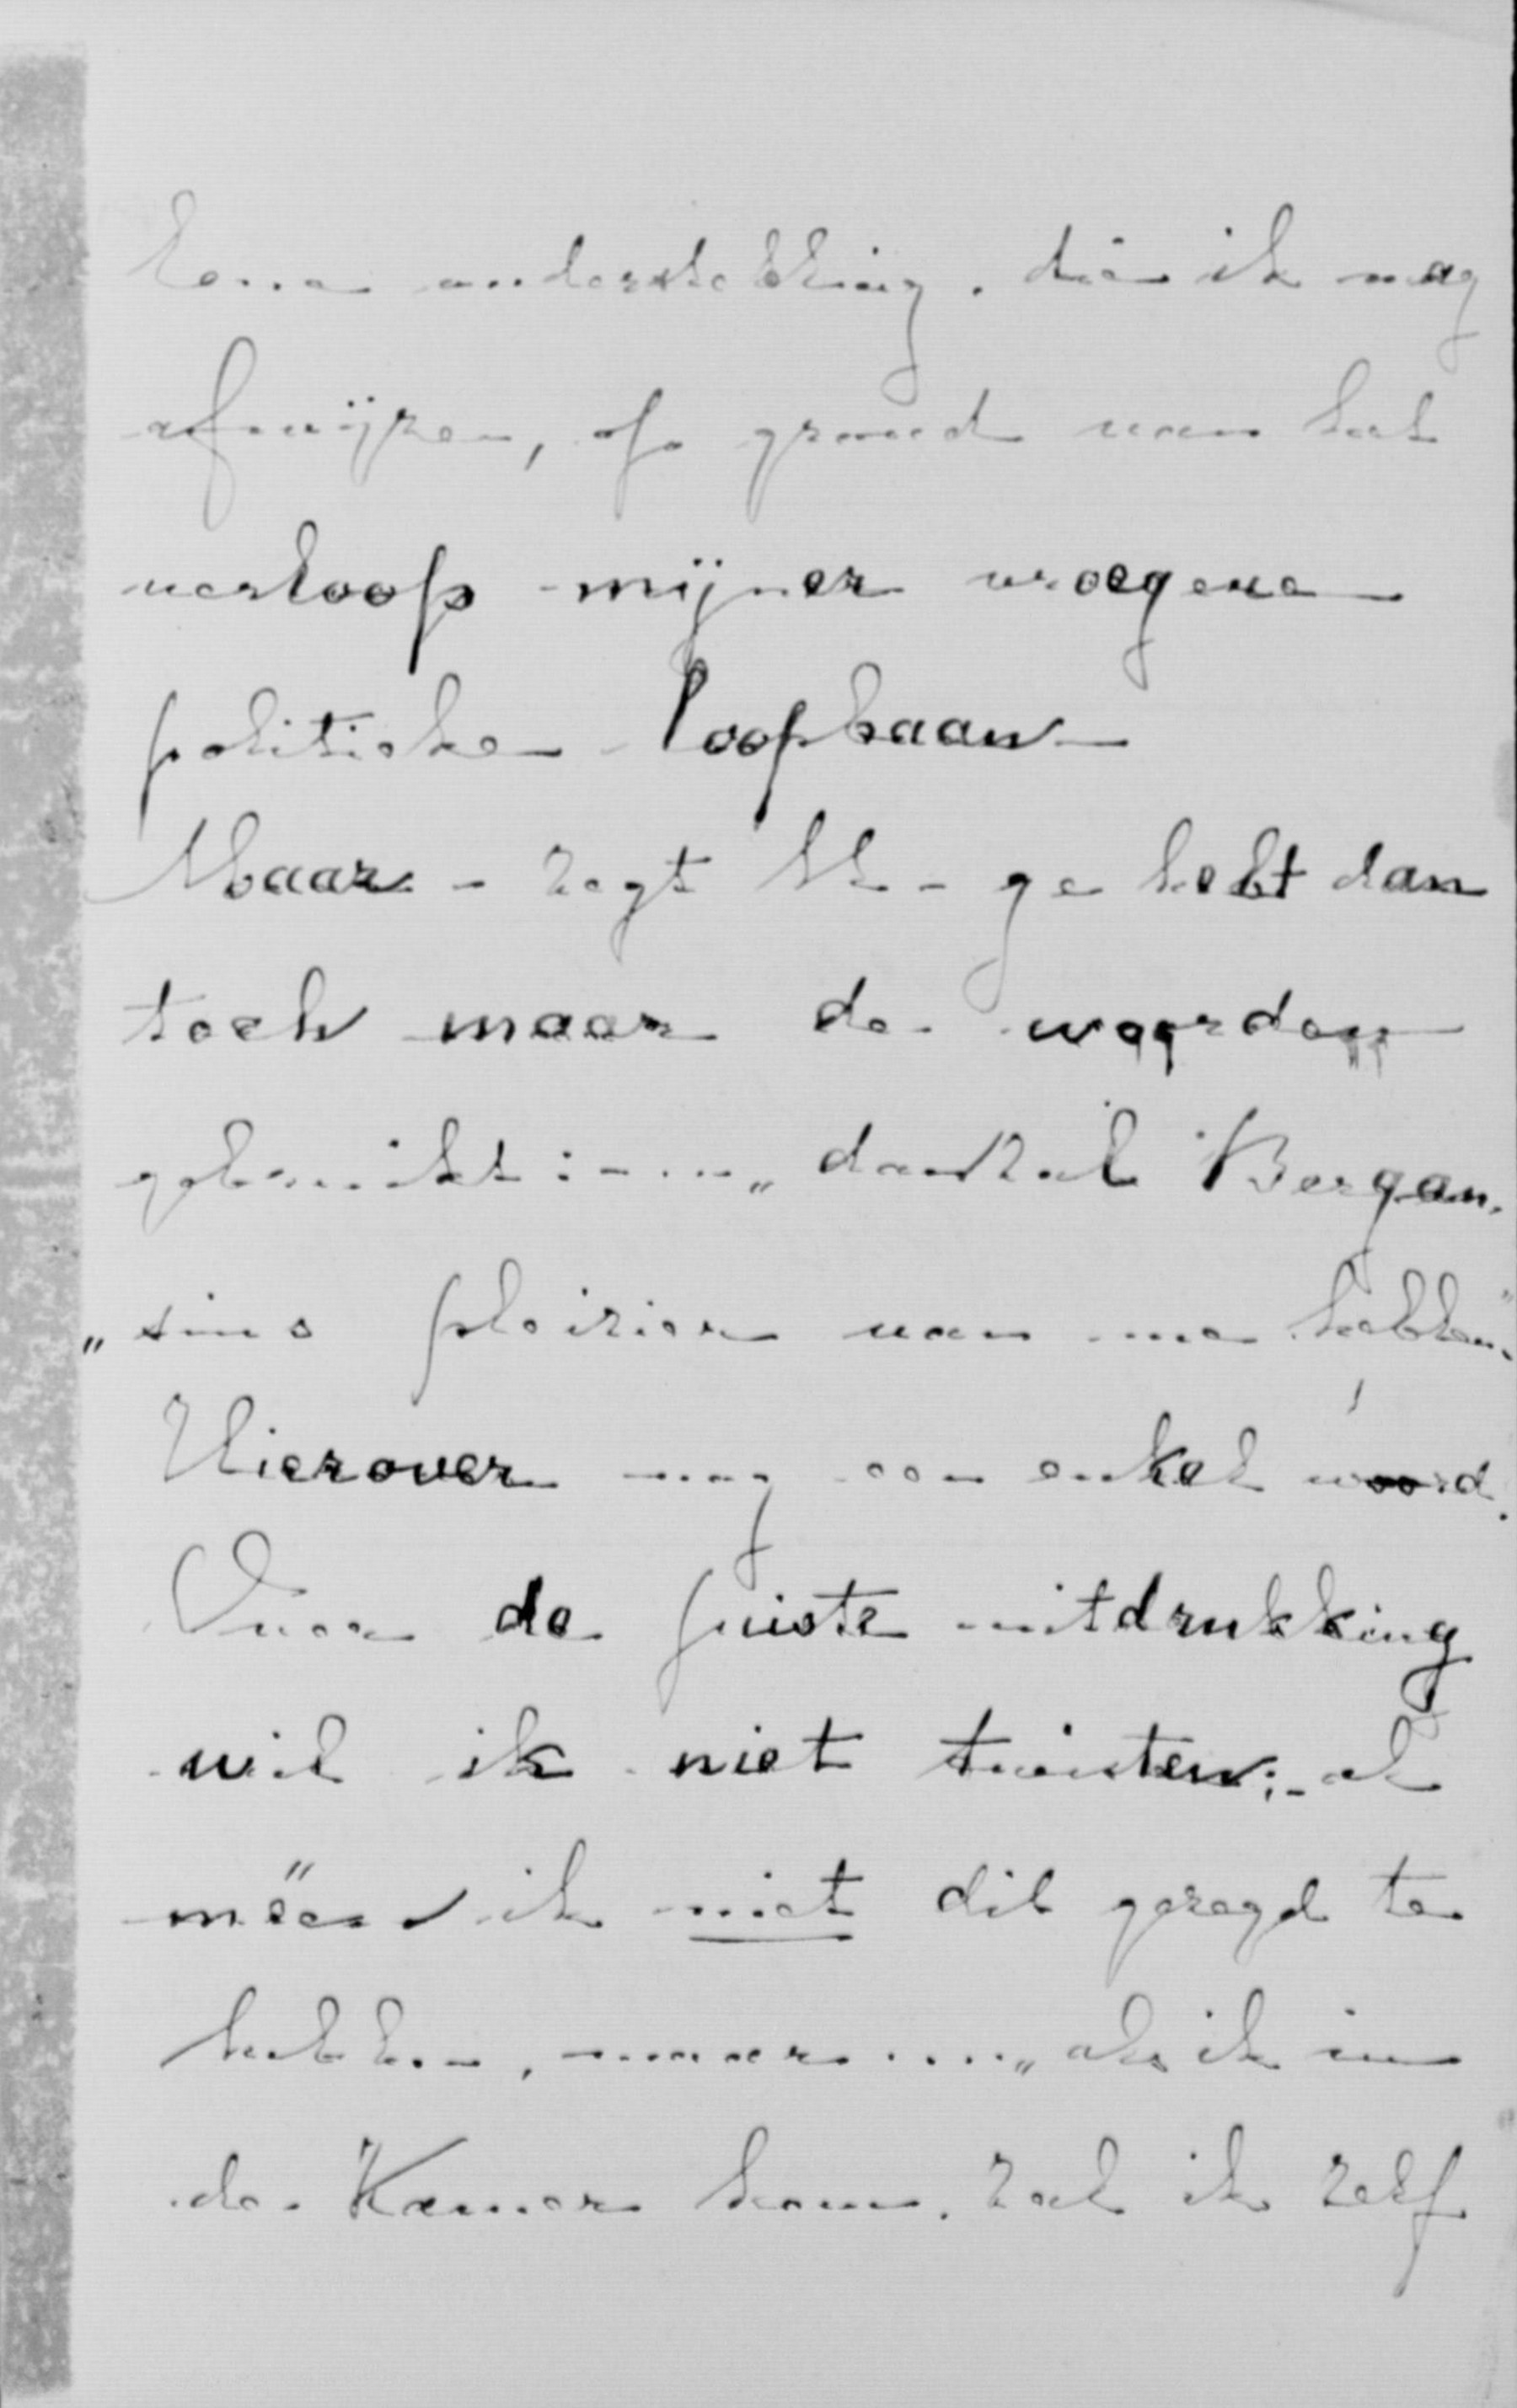 Eene onderstelling, die ik mag
afwijzen, op grond van het
verloop mijner vroegere
politieke loopbaan
Maar - zegt U - ge hebt dan
toch maar de woorden
gebruikt: - ... „dan zal Bergan-
„sius pleizier van me hebben".
Hierover nog een enkel woord.
Over de juiste uitdrukking
wil ik niet twisten; - al
meen ik niet dit gezegd te
hebben, maar .... „als ik in
de Kamer kom, zal ik zelf